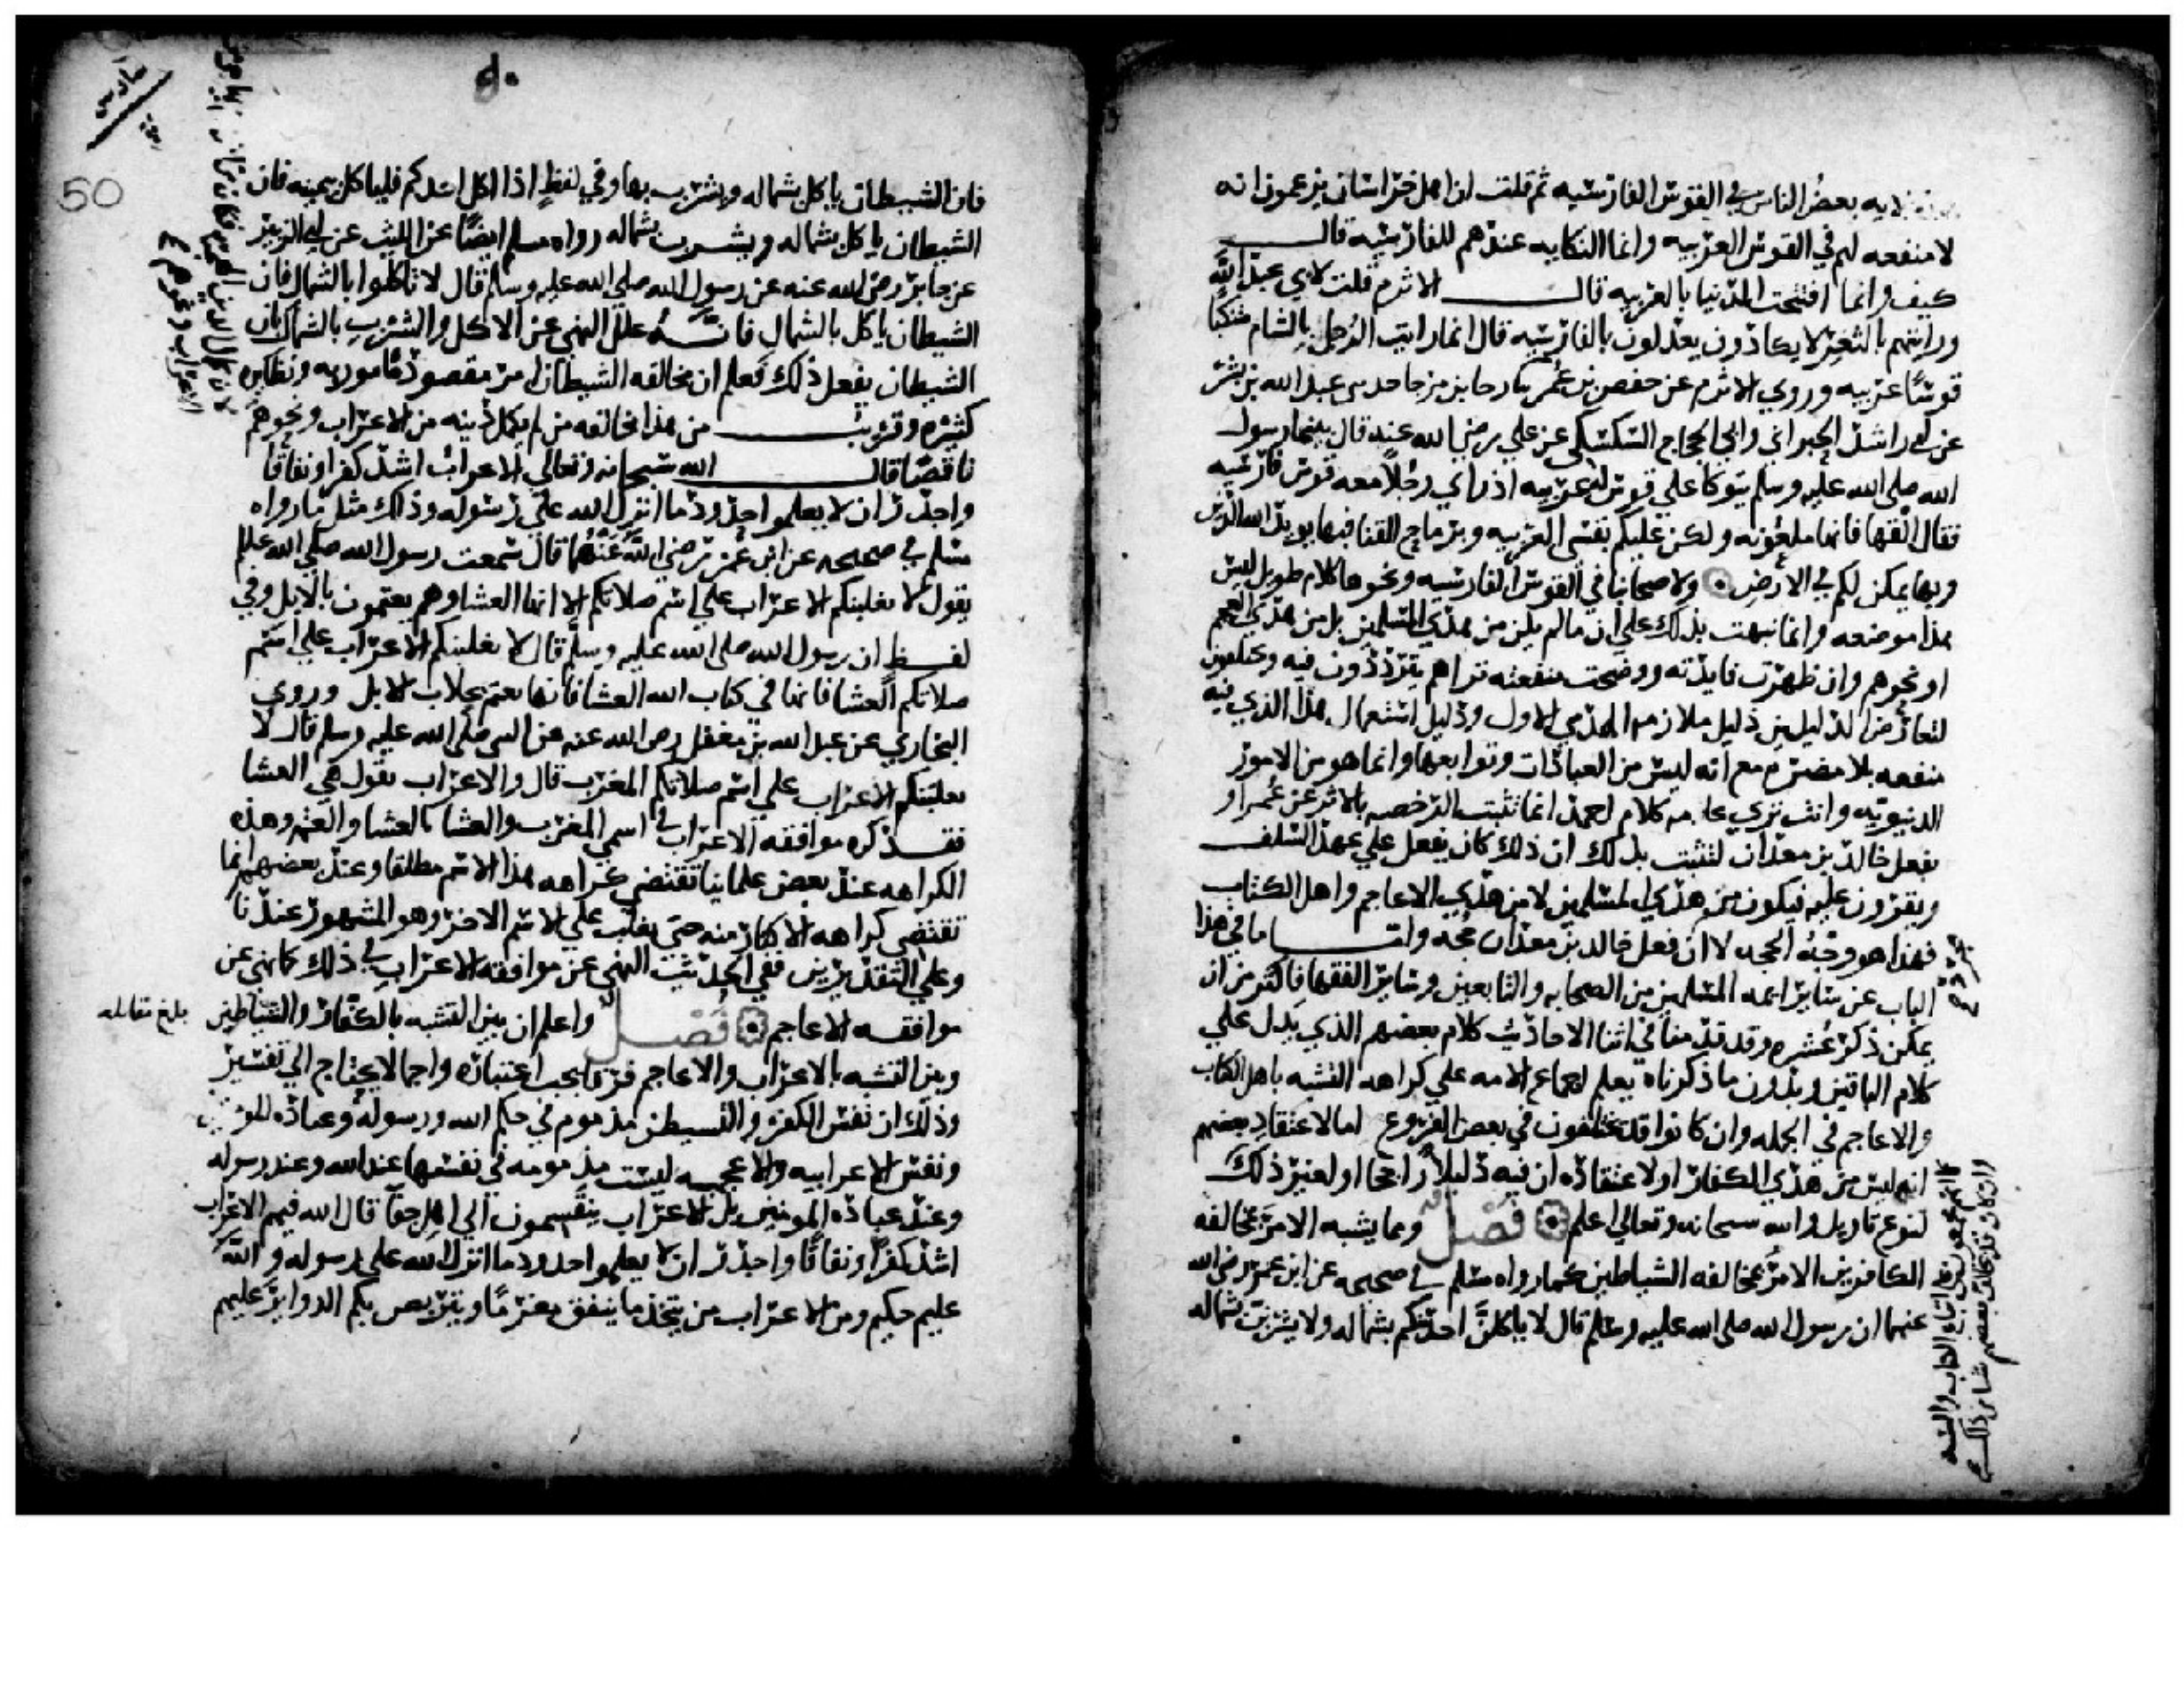 بعض الناس في القوس الفارسيه ثم قلت ان اهل خراسان يزعمون انه
لا منفعه لهم في القوس العربيه وانما النكايه عندهم للفارسيه قال
كيف وانما افتتحت الدنيا بالعربيه قال الاثرم قلت لابي عبد الله
ورايتهم بالثغر لا يكادون يعدلون بالفارسيه قال انما رايت الرجل بالشام متنكبا
قوسا عربيه وروي الاثرم عن حفص بن عمر عبد الله بن بشر
عن ابي راشد الحبراني وابي الحجاج السكسكي عن علي رضي الله عنه قال بينما رسول
الله صلي الله عليه وسلم يتوكا علي قوس له عربيه اذ راي رجلا معه قوس فارسيه
فقال القها فانها ملعونه ولكن عليكم بقسي العربيه وبرماح القنا فبها يويد الله الدين
وبها يمكن لكم في الارض ولاصحابنا في القوس الفارسيه ونحوها كلام طويل ليس
هذا موضعه وانما نبهت بذلك علي ان ما لم يكن من هدي المسلمين بل من هدي العجم
او نحوهم وان ظهرت فايدته ووضحت منفعته تراهم يترددون فيه ويختلفون
لتعارض الدليلين دليل ملازمه الهدي الاول ودليل استعمال هذا الذي فيه
منفعه بلا مضره مع انه ليس من العبادات وتوابعها وانما هو من الامور
الدنيويه وانت تري عامه كلام احمد انما تثبت الرخصه بالاثر عن عمر او
بفعل خالد بن معدان لتثبت بذلك ان ذلك كان يفعل علي عهد السلف
ويقرون عليه فيكون من هدي المسلمين لا من هدي الاعاجم واهل الكتاب
فهذا هو وجه الحجه لا ان فعل خالد بن معدان حجه واما ما في هذا
الباب عن ساير ايمه المسلمين من الصحابه والتابعين وساير الفقها فاكثر من ان
يمكن ذكر عشره وقد قدمنا في اثنا الاحاديث كلام بعضهم الذي يدل علي
كلام الباقين وبدون ما ذكرناه يعلم اجماع الامه علي كراهه التشبه باهل الكتاب
والاعاجم في الجمله وان كانوا قد يختلفون في بعض الفروع اما لاعتقاد بعضهم
انه ليس من هدي الكفار او لاعتقاده ان فيه دليلا راجحا او لغير ذلك
لنوع تاويل والله سبحانه وتعالي اعلم فصل ومما يشبه الامر بمخالفه
الكافرين الامر بمخالفه الشياطين كما رواه مسلم في صحيحه عن ابن عمر رضي الله
عنهما ان رسول الله صلي الله عليه وسلم قال لا ياكلن احدكم بشماله ولا يشربن بشماله
كما انهم مجمعون علي اتباع الكتاب والسنه
وان كان قد خالف بعضهم شيا من ذلك
50
فان الشيطان ياكل بشماله ويشرب بها وفي لفظ اذا اكل احدكم فلياكل بيمينه فان
الشيطان ياكل بشماله ويشرب بشماله رواه مسلم ايضا عن الليث عن ابي الزبير
عن جابر رضي الله عنه عن رسول الله صلي الله عليه وسلم قال لا تاكلوا بالشمال فان
الشيطان ياكل بالشمال فانه علل النهي عن الاكل والشرب بالشمال بان
الشيطان يفعل ذلك فعلم ان مخالفه الشيطان امر مقصود مامور به ونظايره
كثيره وقريب من هذا مخالفه من لم يكمل دينه من الاعراب ونحوهم
ناقصا قال الله سبحانه وتعالي الاعراب اشد كفرا ونفاقا
واجدر ان لا يعلموا حدود ما انزل الله علي رسوله وذلك مثل ما رواه
مسلم في صحيحه عن ابن عمر رضي الله عنهما قال سمعت رسول الله صلي الله عليه
يقول لا يغلبنكم الاعراب علي اسم صلاتكم الا انها العشا وهم يعتمون بالابل وفي
لفظ ان رسول الله صلي الله عليه وسلم قال لا يغلبنكم الاعراب علي اسم
صلاتكم العشا فانها في كتاب الله العشا فانها تعتم بحلاب الابل وروي
البخاري عن عبد الله بن مغفل رضي الله عنه عن النبي صلي الله عليه وسلم قال لا
يغلبنكم الاعراب علي اسم صلاتكم المغرب قال والاعراب تقول هي العشا
فقد كره موافقه الاعراب في اسم المغرب والعشا بالعشا والعتمه وهذه
الكراهه عند بعض علماينا تقتضي كراهه هذا الاسم مطلقا وعند بعضهم انما
تقتضي كراهه الاكثار منه حتي يغلب علي الاسم الاخر وهو المشهور عندنا
وعلي التقديرين ففي الحديث النهي عن موافقه الاعراب في ذلك كما نهي عن
موافقه الاعاجم فصل واعلم ان بين التشبه بالكفار والشياطين
بلغ مقابله
وبين التشبه بالاعراب والاعاجم فرقا يجب اعتباره واجمالا يحتاج الي تفسير
وذلك ان نفس الكفر والتشيطن مذموم في حكم الله ورسوله وعباده المومنين
ونفس الاعرابيه والاعجميه ليست مذمومه في نفسها عند الله وعند رسوله
وعند عباده المومنين بل الاعراب ينقسمون الي اهل جفا قال الله فيهم الاعراب
اشد كفرا ونفاقا واجدر ان لا يعلموا حدود ما انزل الله علي رسوله والله
عليم حكيم ومن الاعراب من يتخذ ما ينفق مغرما ويتربص بكم الدواير عليهم